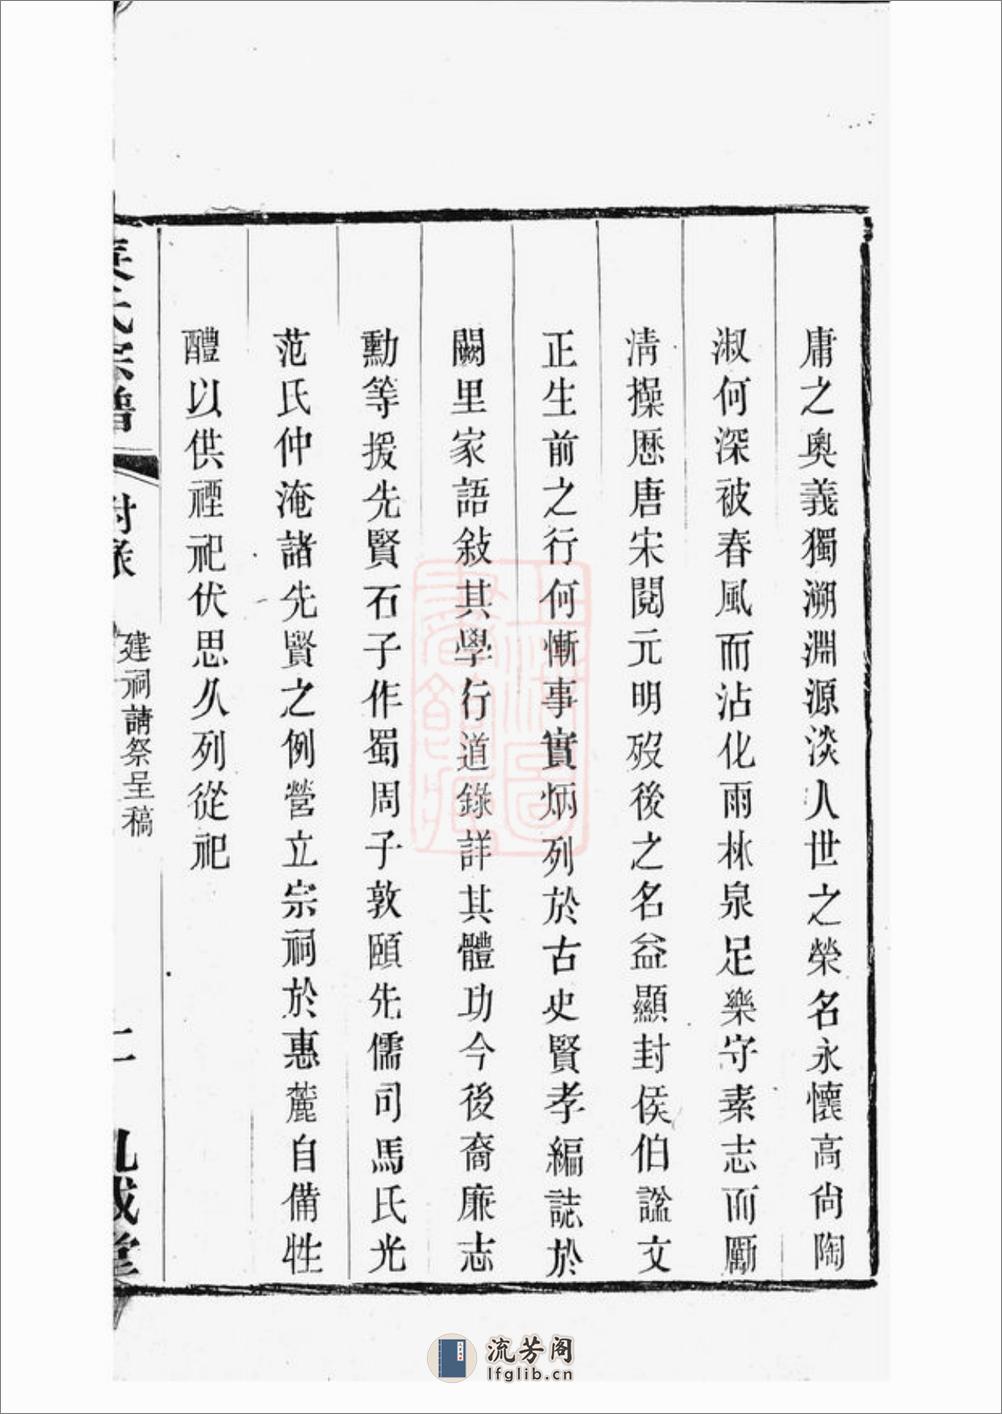 庸之奧義獨溯淵源淡人世之榮名永懷高尙陶
淑何深被春風而沾化雨林泉足樂守素志而勵
淸操歷唐宋閱元明歿後之名益顯封侯伯諡文
正生前之行何慚事實炳列於古史賢孝編誌於
闕里家語敍其學行道錄詳其體功今後裔廉志
勳等援先賢石子作蜀周子敦頤先儒司馬氏光
范氏仲淹諸先賢之例營立宗祠於惠麓自備牲
醴以供禋祀伏思久列從祀
氏宗譜
附錄
建祠請祭呈稿
二
九成堂
流芳阁
lfglib.cn